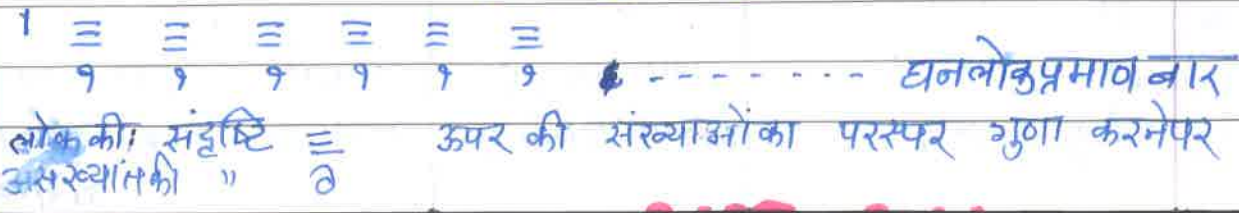 1 ≡ ≡ ≡ ≡ ≡ ≡
१ १ १ १ १ १ - - - - - - - - घनलोकप्रमाव बार
लोक की: संदृष्टि ≡ ऊपर की संख्याओं का परस्पर गुणा करनेपर
असंख्यांतकी " ∂